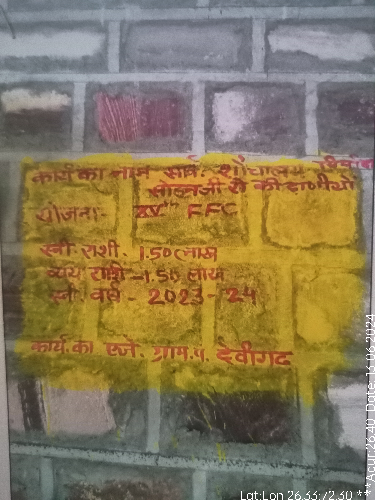 कार्य का नाम सार्व. शौचालय
सोहनजी रो की ढाणीयो
योजना- XVᵗʰ FFC
स्वी राशी. 1.50 लाख
व्यय राशी -1.50 लाख
स्वी वर्ष - 2023-24
कार्य. का एजे. ग्राम.प. देवीगढ
Lat:Lon 26.33:72.30 ***
Acur:26.40 Date: 16-06-2024